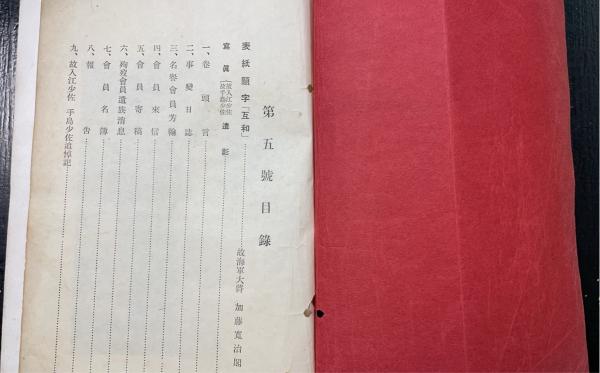 第五號目錄
表紙題字「互和」 故海軍大將 加藤寬治閣
寫眞 故入江少佐 故千島少佐 遺影
一、卷頭言
二、事變日誌
三、名譽會員芳翰
四、會員來信
五、會員寄稿
六、殉歿會員遺族消息
七、會員名簿
八、報告
九、故入江少佐 千島少佐追悼記